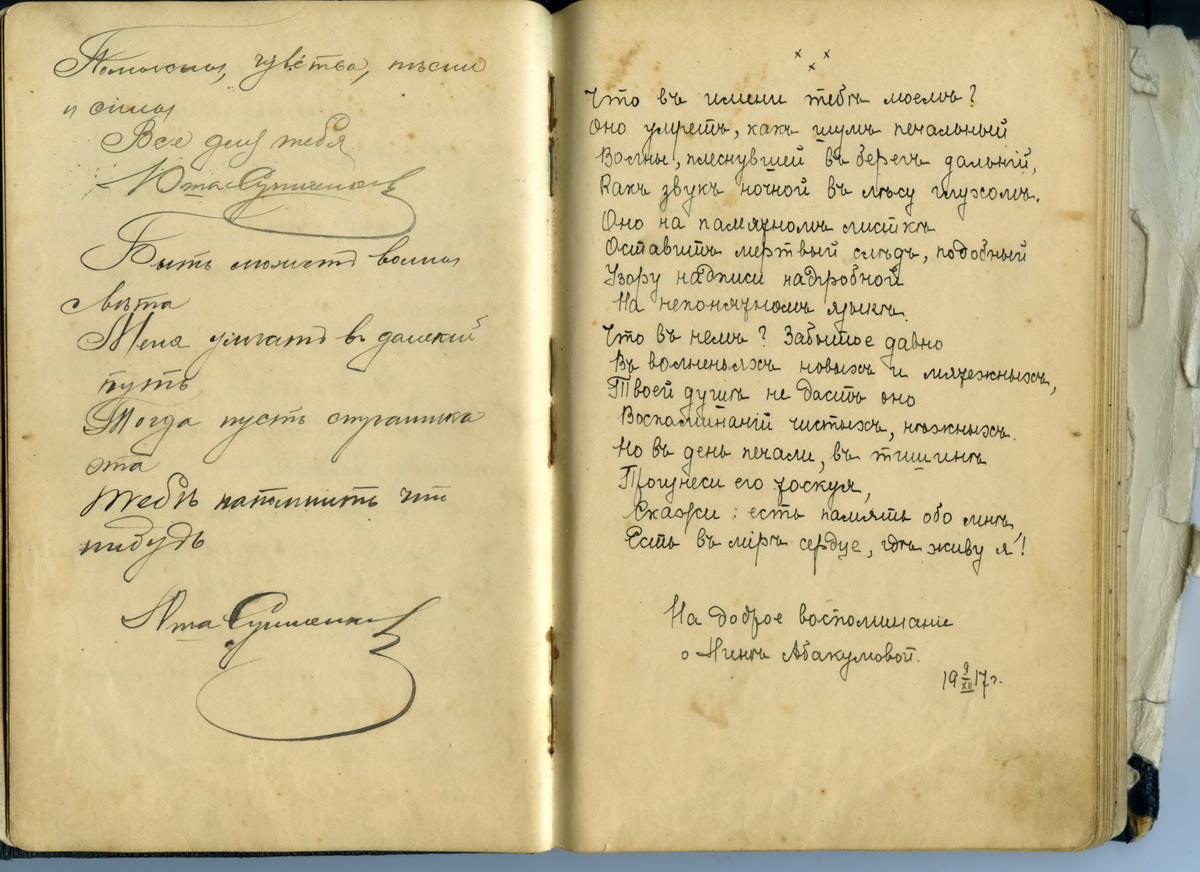 Помыслы, чувства, пѣсни
и силы
Все для тебя
Юта
Быть можетъ волны
свѣта
Меня умчатъ в далекий
путь
Тогда пусть страничка
эта
Тебѣ напомнитъ что
нибудь
Юта
x x
x
Что въ имени тебѣ моемъ?
Оно умретъ, какъ шумъ печальный
Волны, плеснувшей въ берегъ дальній,
Какъ звукъ ночной въ лѣсу глухомъ.
Оно на памятномъ листкѣ
Оставитъ мертвый слѣдъ, подобный
Узору надписи надгробной
На непонятномъ языкѣ.
Что въ немъ? Забытое давно
Въ волненьяхъ новыхъ и мятежныхъ,
Твоей душѣ не дастъ оно
Воспоминаній чистыхъ, нѣжныхъ.
Но въ день печали, въ тишинѣ
Произнеси его тоскуя,
Скажи: есть память обо мнѣ,
Есть въ мірѣ сердце, гдѣ живу я!
На доброе воспоминаніе
о Нинѣ Абакумовой.
19 9/XII 17 г.